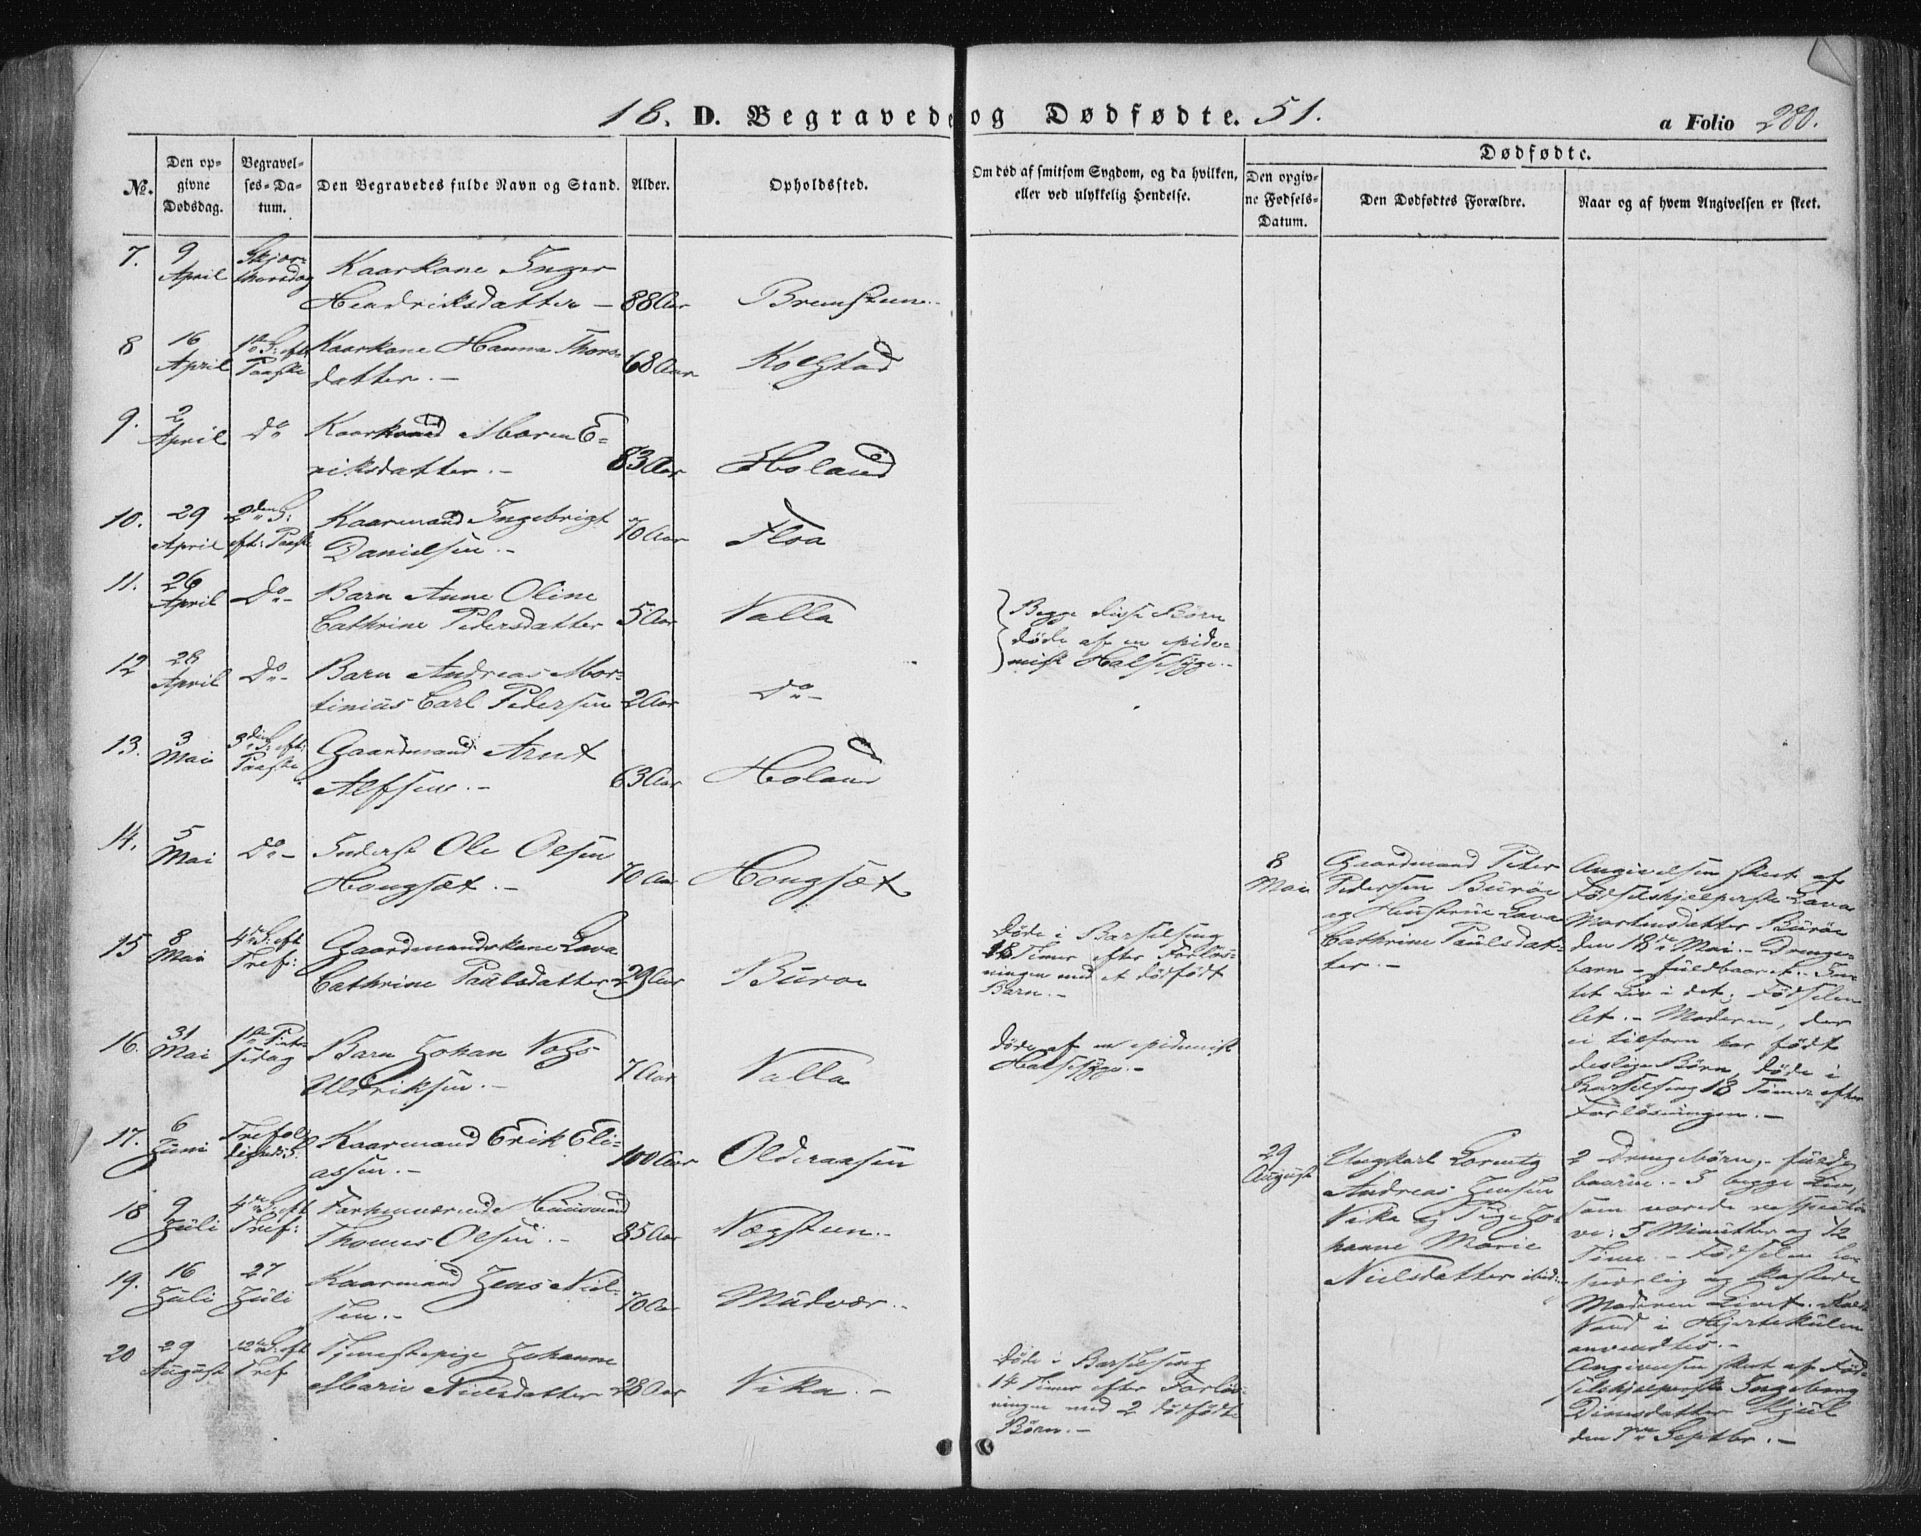 18. D. Begravede og Dødfødte. 51.
a Folio 280.
No.
Den opgivne Dødsdag.
Begravelses-Datum.
Den Begravedes fulde Navn og Stand.
Alder.
Opholdssted.
Om død af smitsom Sygdom, og da hvilken,
eller ved ulykkelig Hendelse.
Dødfødte.
Den opgivne Fødsels-Datum.
Den Dødfødtes Forældre.
Naar og af hvem Angivelsen er skeet.
7. 9 April Skjærthorsdag Kaarkone Inger
Hendriksdatter — 88 Aar
8 16 April 1ste S: eft: Paaske Kaarkone Hanna Thors-
datter. — 68 Aar Kolstad
9. 2 April Do Maren E-
riksdatter. — 83 Aar Holand
10. 29 April 2den S: eft: Paaske Kaarmand Ingebrigt
Danielsen. — 70 Aar Floa
11. 26 April Do — Barn Anne Oline
Cathrine Pedersdatter 5 Aar Valla
12 28 April Do — Barn Andreas Mor-
tinius Carl Pedersen 2 Aar Do —
Begge disse Børn
døde af en epide-
misk Halssyge. —
13. 3 Mai 3die S: eft: Paaske Gaardmand Arnt
Alfsen. — 63 Aar Holand
14. 5 Mai Do — Inderst Ole Olsen
Hongsæt. — 70 Aar Hongsæt
15 8 Mai 4de S: eft Tref: Gaardmandskone Lava
Cathrine Paulsdatter 29 Aar Burøe
Døde i Barselseng
18 Timer efter Forløs-
ningen med et dødfødt
Barn. —
16. 31 Mai 1ste Pintsedag Barn Johan
Aldriksen. — 7 Aar Valla
Døde af en epidemisk
Halssyge. —
17. 6 Juni Kaarmand Erik Eli-
assen. — 100 Aar Olderaasen
18 9 Juli 4de S: eft Tref: Huusmand
Thomas Olsen. — 85 Aar
19. 16 Juli 27 Juli Kaarmand Jens Niel-
sen. — 70 Aar Mudvær. —
20 29 August 12te S: eft Tref Tjenestepige Johanne
Marie Nielsdatter 28 Aar Vika. —
Døde i Barselseng
14 Timer efter Forløs-
ningen med 2 dødfødte
Børn. —
8 Mai
Gaardmand Peter
Pedersen Burøe
og Hustrue Lava
Cathrine Paulsdat-
ter. —
Angivelsen skeet af
Fødselshjelperske Lava
Mortensdatter Burøe
den 18de Mai. — Drenge-
barn — fuldbaaret. In-
tet Liv i det; Fødselen
let. — Moderen, der
ei tilforn har født
deslige Børn, døde i
Barselseng 18 Timer efter
Forløsningen. —
29 August
Ungkarl Lorentz
Andreas Jensen
Vika og Pige Jo-
hanne Marie
Nielsdatter ibid:
2 Drengebørn, fuld-
baarne. — I begge Liv,
som varede respecti-
ve: 5 Minutter og 1/2
Time. — Fødselen
og kostede
Moderen Livet.
Vand i Hjertekulen
anvendtes. —
Angivelsen skeet af Fød-
selshjelperske Ingeborg
den 7de Septbr. —